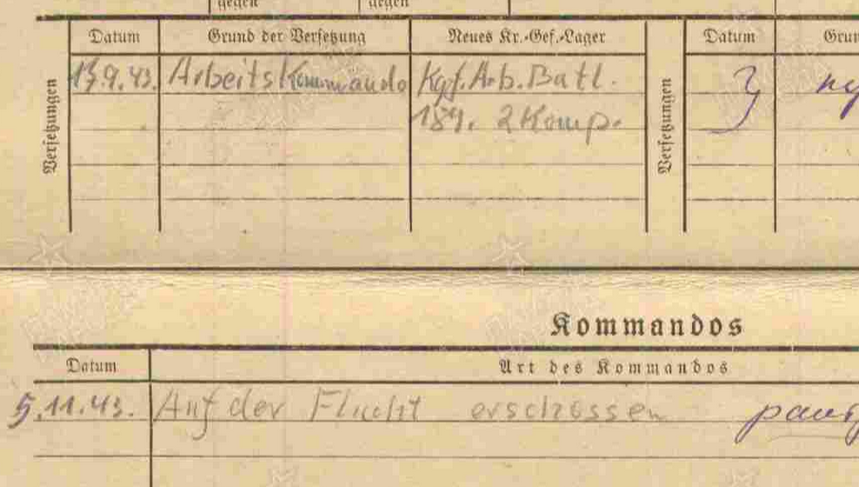 gegen gegen
Datum Grund der Versetzung Neues Kr.-Gef.-Lager Datum
Versetzungen
13.9.43. Arbeitskommando Kgf. Arb. Batl.
2 Komp.
Versetzungen
Kommandos
Datum Art des Kommandos
5.11.43. Auf der Flucht erschossen